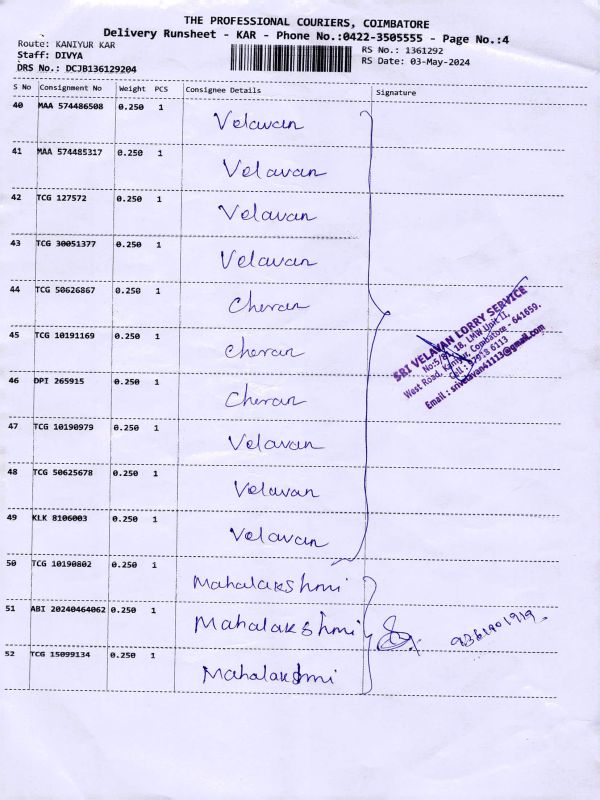 THE PROFESSIONAL COURIERS, COIMBATORE
Delivery Runsheet - KAR - Phone No.:0422-3505555 - Page No.:4
Route: KANIYUR KAR
Staff: DIVYA
DRS No.: DCJB136129204
RS No.: 1361292
RS Date: 03-May-2024
S No Consignment No Weight PCS Consignee Details Signature
40 MAA 574486508 0.250 1 Velavan
41 MAA 574485317 0.250 1 Velavan
42 TCG 127572 0.250 1 Velavan
43 TCG 30051377 0.250 1 Velavan
44 TCG 50626867 0.250 1 Cheran
45 TCG 10191169 0.250 1 Cheran
46 DPI 265915 0.250 1 Cheran
SRI VELAVAN LORRY SERVICE
No:5/81, 18, LMW Unit II,
West Road, Kaniyur, Coimbatore - 641659.
Cell : 97918 6113
Email : srivelavan41113@gmail.com
47 TCG 10190979 0.250 1 Velavan
48 TCG 50625678 0.250 1 Velavan
49 KLK 8106003 0.250 1 Velavan
50 TCG 10190802 0.250 1 Mahalakshmi
51 ABI 20240464062 0.250 1 Mahalakshmi 9361901919
52 TCG 15099134 0.250 1 Mahalakshmi